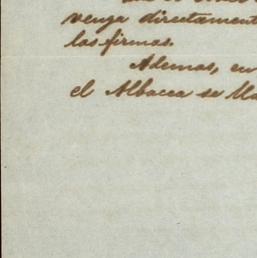 venga directament
las firmas.
Ademas, en
el Albacea se